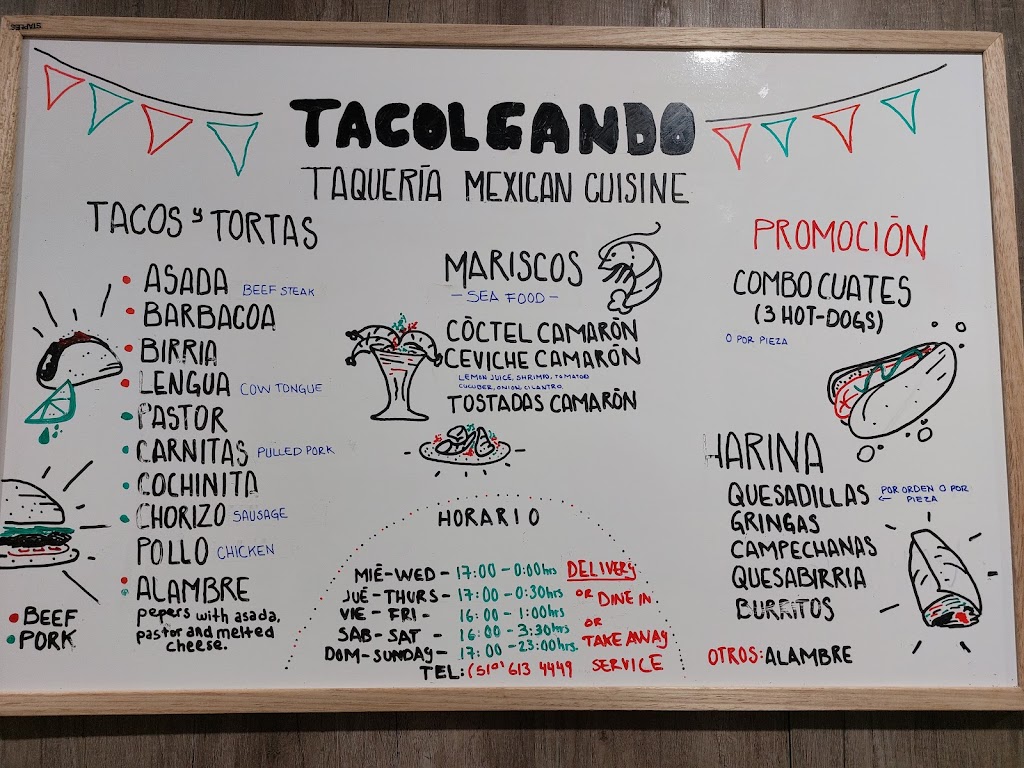 TACOLGANDO
TAQUERÍA MEXICAN CUISINE
TACOS Y TORTAS
• ASADA BEEF STEAK
• BARBACOA
• BIRRIA
• LENGUA COW TONGUE
• PASTOR
• CARNITAS PULLED PORK
• COCHINITA
• CHORIZO SAUSAGE
POLLO CHICKEN
• ALAMBRE
pepers with asada,
pastor and melted
cheese.
• BEEF
• PORK
MARISCOS
- SEA FOOD -
CÒCTEL CAMARÓN
CEVICHE CAMARÓN
LEMON JUICE, SHRIMP, TOMATOO
CUCUBER, ONION, CILANTRO,
TOSTADAS CAMARÓN
HORARIO
MIÉ-WED - 17:00 - 0:00hrs
JUÉ-THURS - 17:00 - 0:30hrs
VIE - FRI - 16:00 - 1:00hrs
SAB - SAT - 16:00 - 3:30hrs
DOM-SUNDAY - 17:00 - 23:00hrs.
DELIVERY
OR DINE IN.
OR
TAKE AWAY
SERVICE
613 4449
TEL:
PROMOCIÓN
COMBO CUATES
(3 HOT-DOGS)
O POR PIEZA
HARINA
QUESADILLAS
POR ORDEN O POR
PIEZA
GRINGAS
CAMPECHANAS
QUESABIRRIA
BURRITOS
OTROS: ALAMBRE